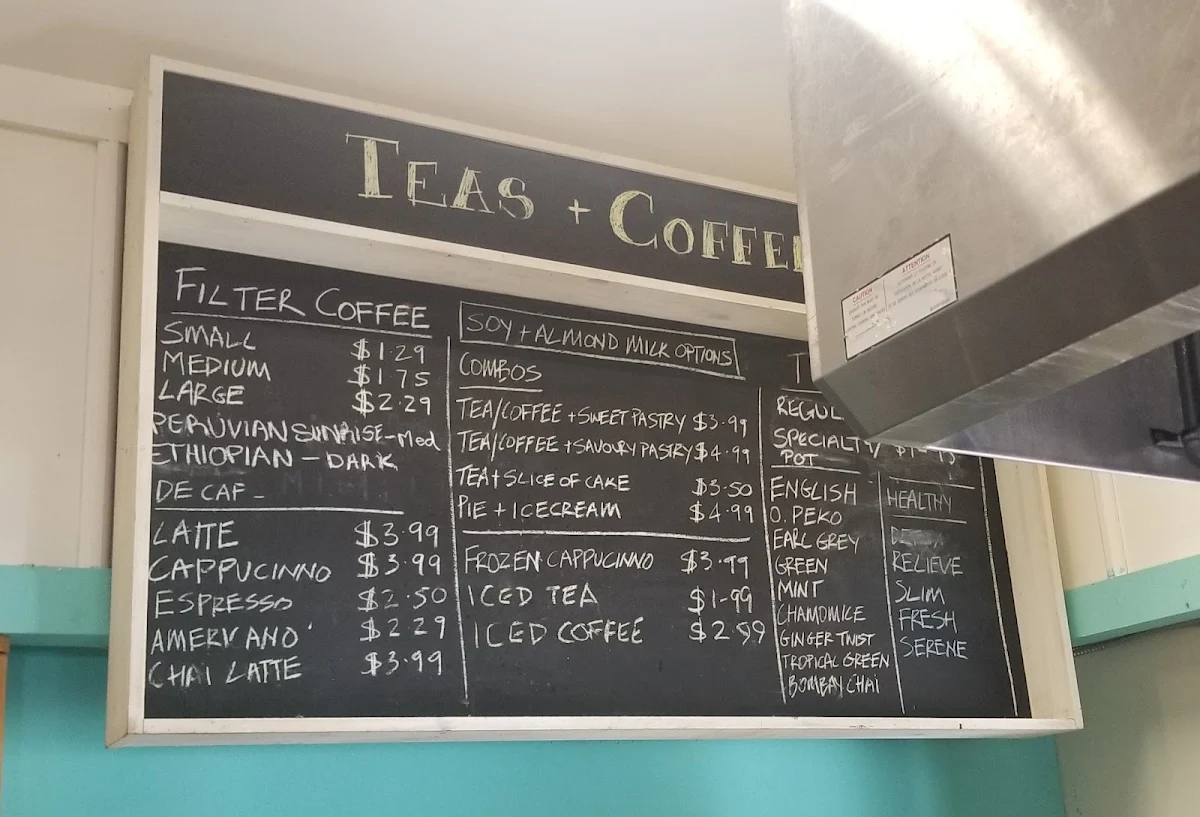 TEAS + COFFEE
FILTER COFFEE
SMALL $1.29
MEDIUM $1.75
LARGE $2.29
PERUVIAN SUNRISE-Med
ETHIOPIAN - DARK
DECAF -
LATTE $3.99
CAPPUCINNO $3.99
ESPRESSO $2.50
AMERICANO $2.29
CHAI LATTE $3.99
SOY + ALMOND MILK OPTIONS
COMBOS
TEA/COFFEE + SWEET PASTRY $3.99
TEA/COFFEE + SAVOURY PASTRY $4.99
TEA + SLICE OF CAKE $3.50
PIE + ICECREAM $4.99
FROZEN CAPPUCINNO $3.99
ICED TEA $1.99
ICED COFFEE $2.99
T
REGUL
SPECIALTY
POT
ENGLISH
O. PEKO
EARL GREY
GREEN
MINT
CHAMOMICE
GINGER TWIST
TROPICAL GREEN
BOMBAY CHAI
HEALTHY
RELIEVE
SLIM
FRESH
SERENE
CAUTION
ATTENTION